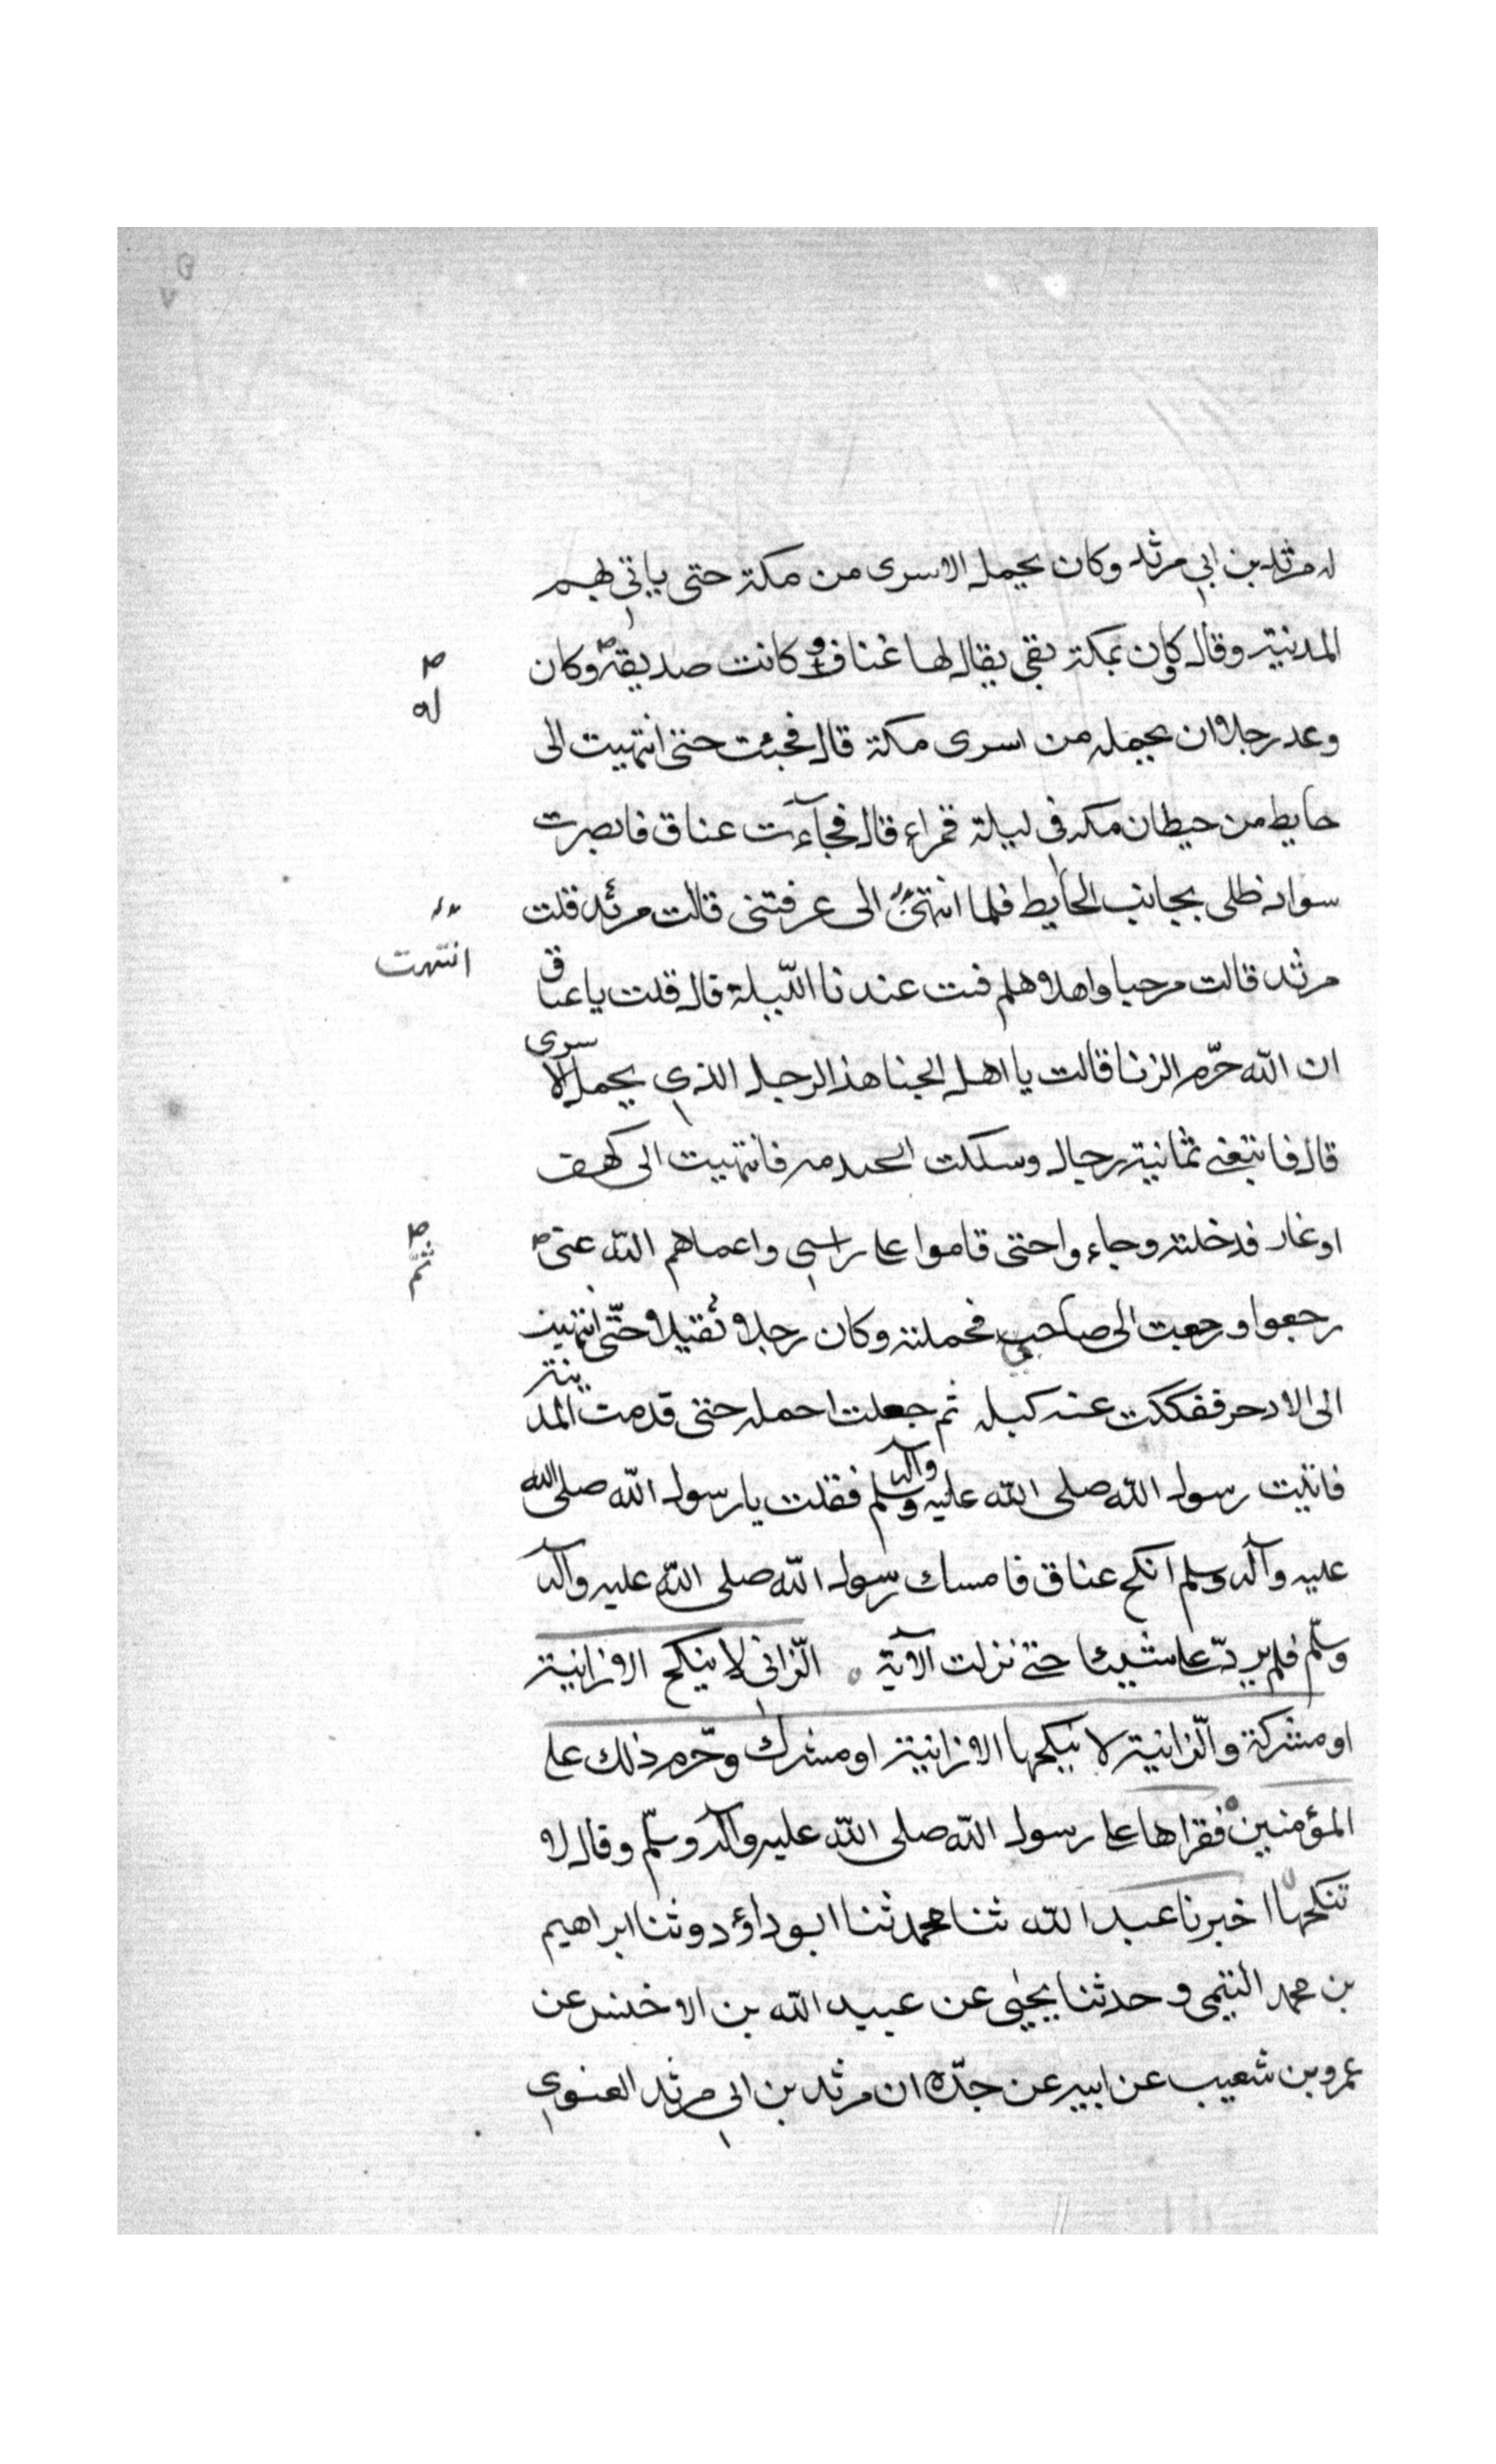 له مرثد بن ابي مرثد وكان يحمل الاسرى من مكة حتى ياتي بهم
المدنية وقال وكان بمكة بقى يقال لها غناق و كانت صديقة وكان
له
وعد رجلا ان يحمله من اسرى مكة قال فجئت حتى انتهيت الى
حايط من حيطان مكه في ليلة قمراء قال فجآءت عناق فابصرت
سواد ظلى بجانب الحايط فلما انتهى الى عرفتنى قالت مرثد قلت
انتهت
مرثد قالت مرحبا واهلا هلم فبت عندنا اللّيلة قال قلت يا عناق
ان الله حرّم الزنا قالت يا اهل الخبا هذ الرجل الذي يحمل الاسرى
قال فاتبعنى ثمانية رجال وسلكت فانتهيت الى كهف
او غار فدخلته وجاءوا حتى قاموا على راسي واعماهم الله عنى
ثمّ
رجعوا ورجعت الى صاحبي فحملته وكان رجلا ثقيلا حتّى انتهيت
الى الادخر ففككت عنه كبله ثم جعلت احمله حتى قدمت المدينة
فاتيت رسول الله صلى الله عليه وآله وسلم فقلت يا رسول الله صلى الله
عليه وآله وسلم انكح عناق فامسك رسول الله صلى الله عليه وآله
وسلّم فلم يردّ على شيئا حتى نزلت الآية الزّانى لا ينكح الا زانية
او مشركة والزّانية لا ينكحها الا زانية او مشرك وحّرم ذلك على
المؤمنين فقراها على رسول الله صلى الله عليه وآله وسلّم وقال لا
تنكحها اخبرنا عبد الله ثنا محمد ثنا ابو داؤد وثنا ابراهيم
بن محمد التيمى وحدثنا يحيى عن عبيد الله بن الاخنس عن
عمرو بن شعيب عن ابيه عن جدّه ان مرثد بن ابي مرثد الغنوي